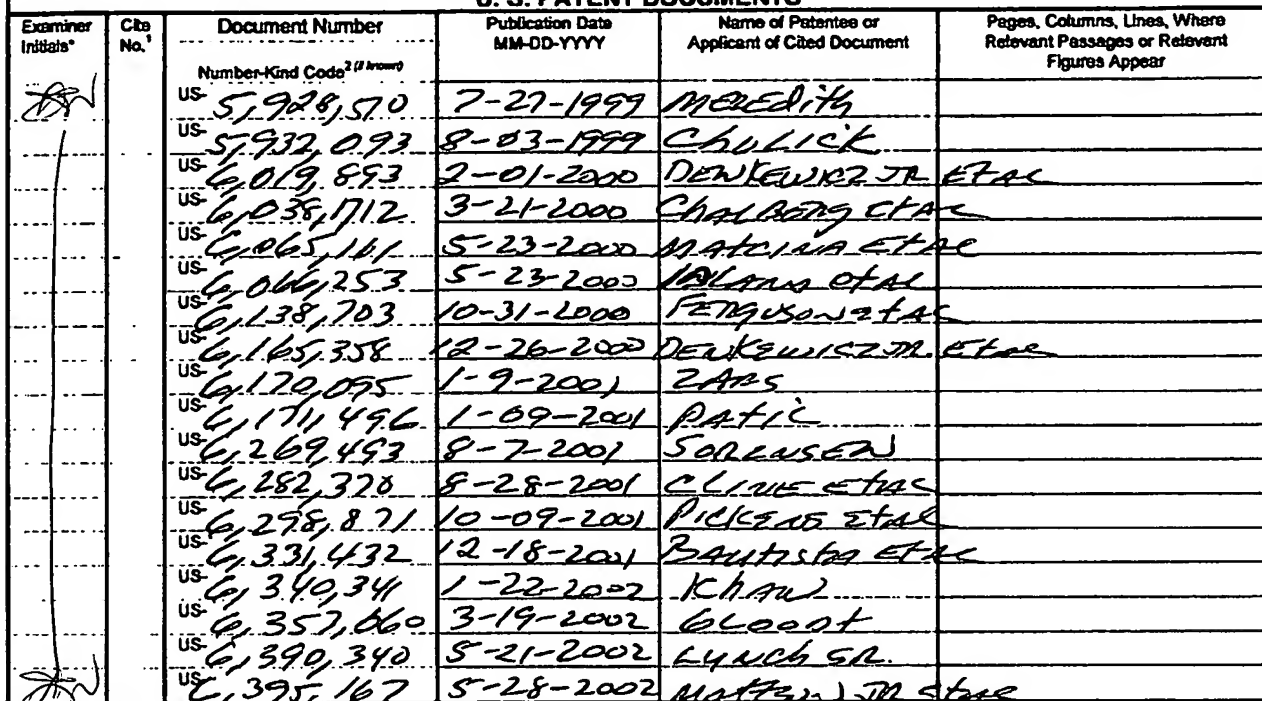 U. S. PATENT DOCUMENTS
Examiner Initials* Cite No.¹ Document Number Publication Date MM-DD-YYYY Name of Patentee or Applicant of Cited Document Pages, Columns, Lines, Where Relevant Passages or Relevant Figures Appear
Number-Kind Code² (if known)
US- 5,928,510 7-27-1999 Meredith
US- 5,932,093 8-03-1999 Chulick
US- 6,019,893 2-01-2000 Denkewicz JR Et al
US- 6,038,712 3-21-2000 Chalberg Et Al
US- 6,065,161 5-23-2000 Et Al
US- 6,066,253 5-23-2000 et Al
US- 6,138,703 10-31-2000 Ferguson et Al
US- 6,165,358 12-26-2000 Denkewicz JR. Et al
US- 6,170,095 1-9-2001 Zars
US- 6,171,496 1-09-2001 Patil
US- 6,269,493 8-7-2001 Sorensen
US- 6,282,370 8-28-2001 Cline et al
US- 6,298,871 10-09-2001 Pickens Et al
US- 6,331,432 12-18-2001 Bautista Et al
US- 6,340,341 1-22-2002 Khan
US- 6,357,060 3-19-2002 Gloodt
US- 6,390,340 5-21-2002 Lynch SR.
US- 6,395,167 5-28-2002 JR et al